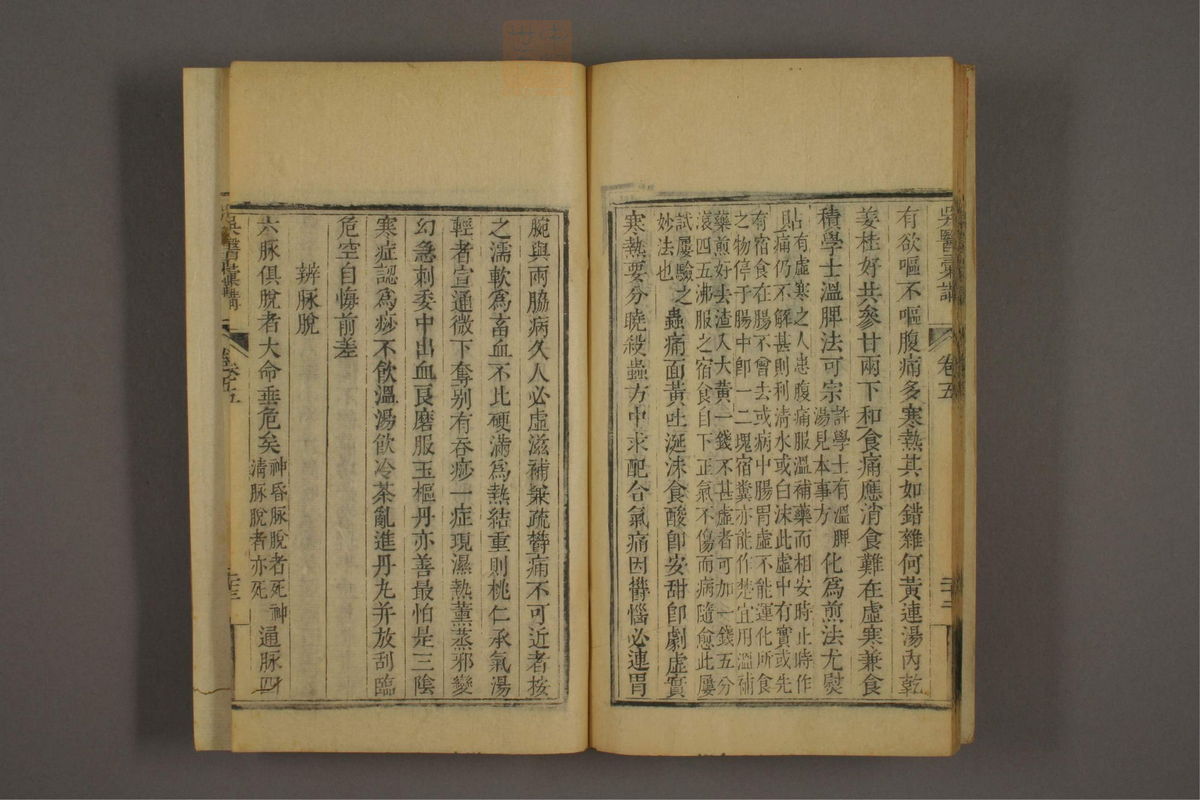 有欲嘔不嘔腹痛多寒熱其如錯雜何黃連湯內乾
姜桂好共參甘兩下和食痛應消食難在虛寒兼食
積學士溫脾法可宗許學士有溫脾湯見本事方化為煎法尤熨
貼有虛寒之人患腹痛服溫補藥而相安時止時作
則痛仍不解甚則利清水或白沫此虛中有實或先
有宿食在腸不曾去或病中腸胃虛不能運化所食
之物停于腸中卽一二塊宿糞亦能作楚宜用溫補
藥煎好去渣入大黃一錢不甚虛者可加一錢五分
滾四五沸服之宿食自下正氣不傷而病隨愈此屢
試屢驗之妙法也蟲痛面黃吐涎沫食酸卽安甜卽劇虛實
寒熱要分曉殺蟲方中求配合氣痛因鬱惱必連胃
吳醫彙講
卷五
脘與兩脇病久人必虛滋補兼疏瞀痛不可近者按
之濡軟為畜血不比硬滿為熱結重則桃仁承氣湯
輕者宣通微下奪别有吞痧一症現濕熱薰蒸邪變
幻急刺委中出血良磨服玉樞丹亦善最怕是三陰
寒症認為痧不飲溫湯飲冷茶亂進丹丸并放刮臨
危空自悔前差
辨脉脫
六脉俱脫者大命垂危矣神昏脉脫者死神清脉脫者亦死通脉四
吳醫彙講
卷五